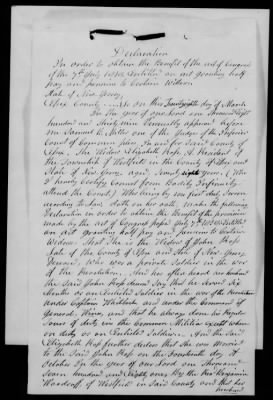 Declaration
In order to obtain the Benefit of the act of Congress
of the 7th July 1838 Entitled an act granting half
pay and pension to Certain Widows
State of New Jersey
Essex County on this day of March
In the year of our Lord one thousand Eight
hundred and thirty nine Personally appeared before
me Samuel L. Miller one of the Judges of the Inferior
Court of Common pleas In and for said County of
Essex, The Widow Elizabeth Ross, A Resident of
the Township of Westfield in the County of Essex and
State of New Jersey aged years, (Who
I hereby Certify Cannot from Bodily Infirmity
attend the Court) Who being by me first duly sworn
according to Law Doth on her oath make the following
Declaration in order to obtain the Benefit of the provision
made by the act of Congress passed July 7 1838 Entitled
an act granting half pay and pension to Certain
Widows, That She is the Widow of John Ross
late of the County of Essex and State of New Jersey
Deceased, Who was a private Soldier in the War
of the Revolution, And has often heard her husband
the Said John Ross Deceased Say that he served
Months as an Enlisted Soldier in the war of the Revolution
under Captain and under the Command of
General and that he always done his Regular
tours of duty in the Common Militia when
on duty as an Enlisted Soldier, And the Said
Elizabeth Ross further declares that She was Married
to the Said John Ross on the day of
October In the year of our Lord one Thousand
Seven hundred and Eighty one, By the Rev Benjamin
Woodruff of Westfield in Said County and that her
husband